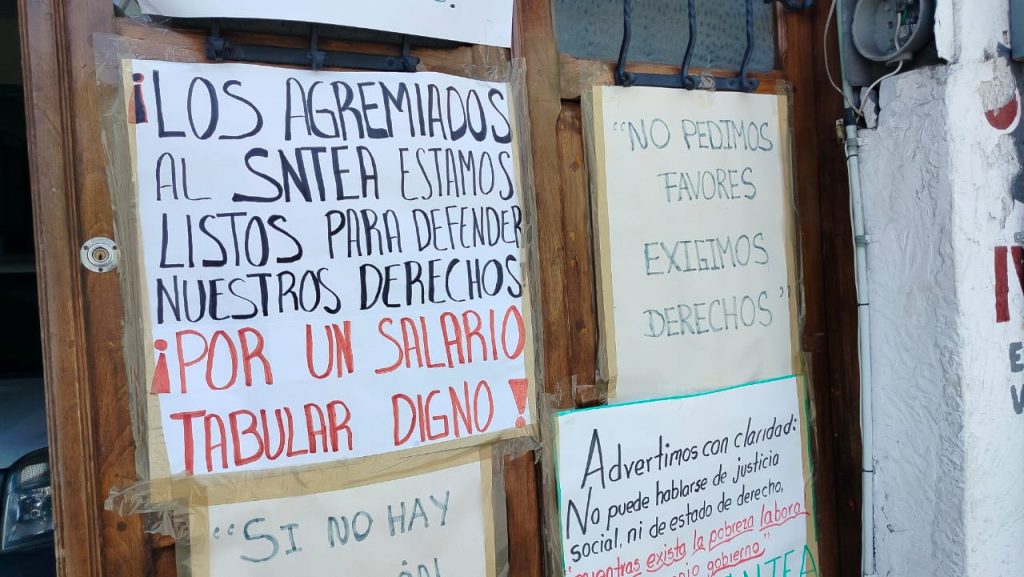 ¡LOS AGREMIADOS
AL SNTEA ESTAMOS
LISTOS PARA DEFENDER
NUESTROS DERECHOS
¡POR UN SALARIO
TABULAR DIGNO!
"NO PEDIMOS
FAVORES
EXIGIMOS
DERECHOS"
"SI NO HAY
Advertimos con claridad:
No puede hablarse de justicia
social, ni de estado de derecho,
"mientras exista la pobreza
gobierno."